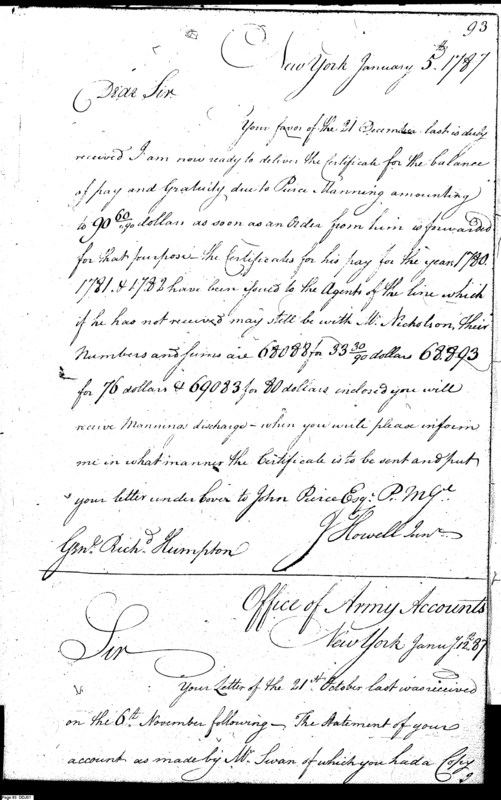 93
New York January 5th 1787
Dear Sir
Your favor of the 21 December last is duly
received I am now ready to deliver the Certificate for the balance
of pay and Gratuity due to Pierce Manning amounting
to 90 60/90 dollars as soon as an Order from him is forwarded
for that purpose the Certificates for his pay for the year 1780.
1781. & 1782 have been issued to the Agents of the line which
if he has not received may still be with Mr. Nicholson, their
Numbers and sums are 68088 for 33 30/90 dollars 68.893
for 76 dollars & 69083 for 80 dollars inclosed you will
receive Mannings discharge - when you write please inform
me in what manner the Certificate is to be sent and put
your letter under Cover to John Pierce Esqr. P. M Gl
J Howell Junr.
Genl. Richd Humpton
Office of Army Accounts
New York Jany 12th 87
Sir
Your Letter of the 21st October last was received
on the 6th November following - The Statement of your
account as made by Mr. Swan of which you had a Copy
Page 93